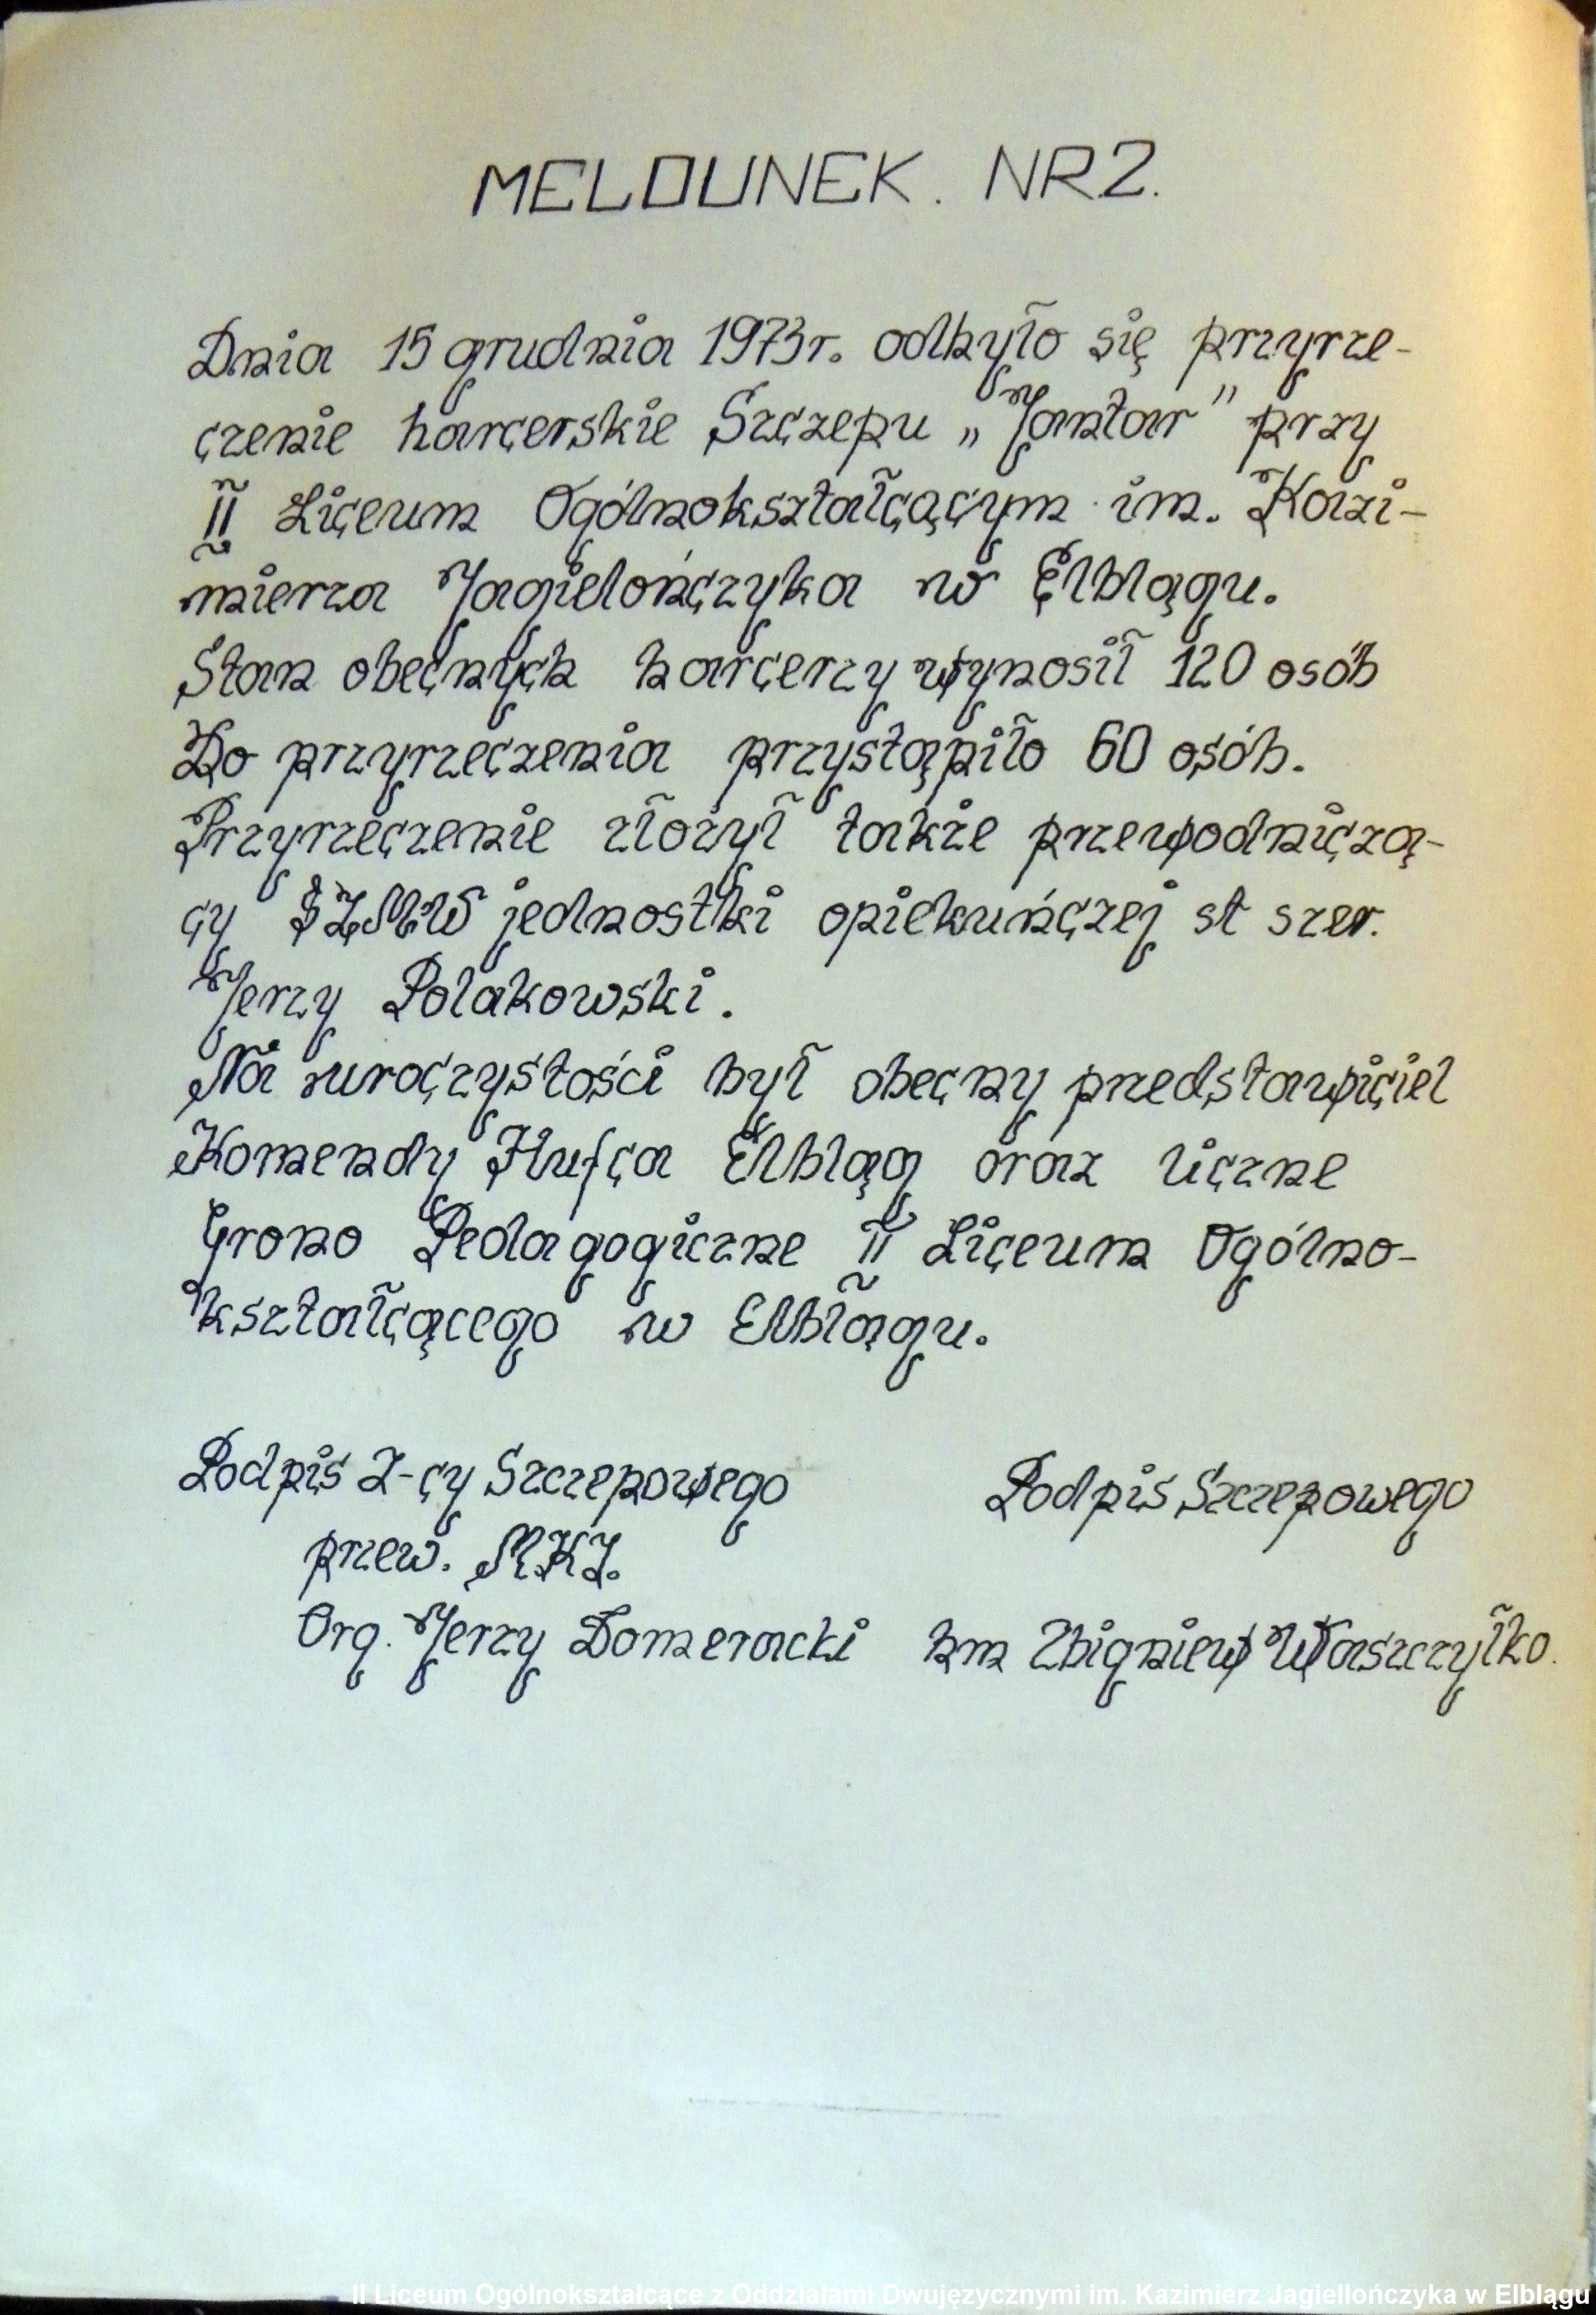 MELDUNEK. NR 2.
Dnia 15 grudnia 1973r. odbyło się przyrze-
czenie harcerskie Szczepu „Jantar” przy
II Liceum Ogólnokształcącym im. Kazi-
mierza Jagielończyka w Elblągu.
Stan obecnych harcerzy wynosił 120 osób
Do przyrzeczenia przystąpiło 60 osób.
Przyrzeczenie złożył także przewodniczą-
cy SZMW jednostki opiekuńczej st szer.
Jerzy Polakowski.
Na uroczystości był obecny przedstawiciel
Komendy Hufca Elbląg oraz liczne
Grono Pedagogiczne II Liceum Ogólno-
kształcącego w Elblągu.
Podpis Z-cy Szczepowego Podpis Szczepowego
przew. MKI.
Org. Jerzy Domeracki hm Zbigniew Waszczyłko.
II Liceum Ogólnokształcące z Oddziałami Dwujęzycznymi im. Kazimierz Jagiellończyka w Elblągu